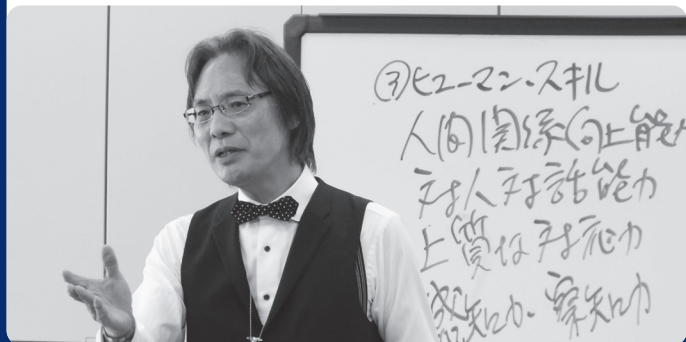 ③ヒューマン・スキル
人間関係(向上能力
対人対話能力
上質な対応力
感知力・察知力